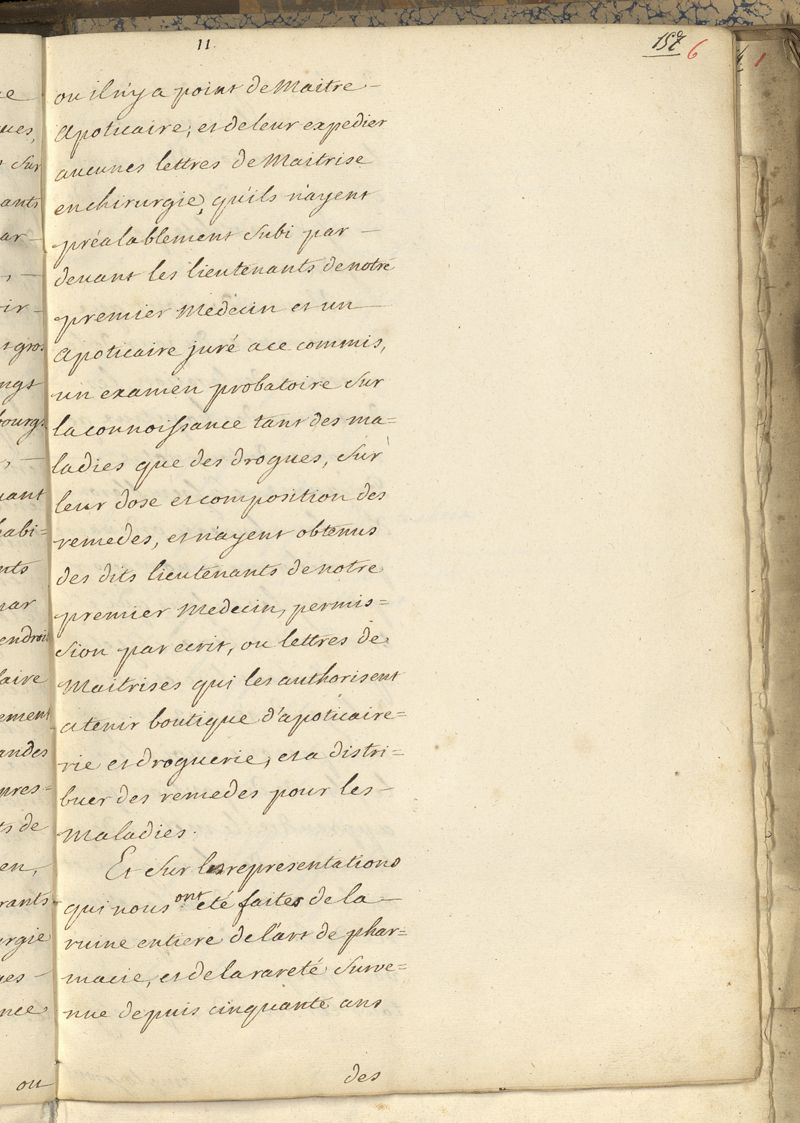 11.
157 6
ou il n'y a point de Maitre –
Apoticaire, et de leur expedier
aucunes lettres de Maitrise
en chirurgie, qu'ils n'ayent
préalablement subi par –
devant les lieutenants de notre
premier Medecin et un –
Apoticaire juré a ce commis,
un examen probatoire sur
la connoissance tant des ma=
ladies que des drogues, sur
leur dose et composition des
remedes, et n'ayent obtenus
des dits lieutenants de notre
premier Medecin, permis=
sion par ecrit, ou lettres de
Maitrises qui les authorisent
a tenir boutique d'apoticaire=
rie et droguerie, et a distri=
buer des remedes pour les –
Maladies.
Et sur les representations
qui nous ont été faites de la –
ruine entiere de l'art de phar=
macie, et de la rareté surve=
nue depuis cinquante ans
des
1
ues,
sur
ants
ar –
ir –
t gros
ngs
bourgs
uant
habi=
nts
par
endroit
faire
ement
andes
pres=
ts de
en,
rants
urgie
ges –
nce
ou